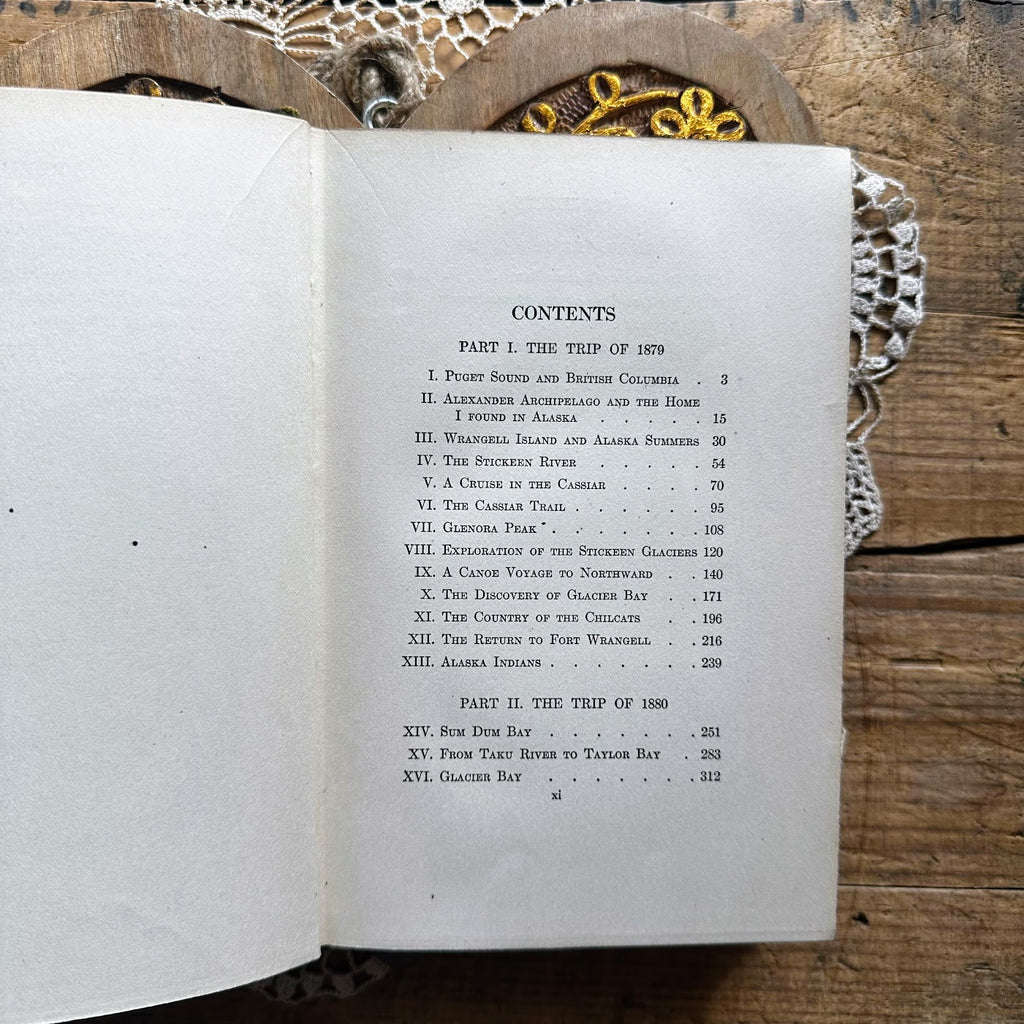 CONTENTS
PART I. THE TRIP OF 1879
I. Puget Sound and British Columbia . 3
II. Alexander Archipelago and the Home
I found in Alaska . . . . . 15
III. Wrangell Island and Alaska Summers 30
IV. The Stickeen River . . . . . 54
V. A Cruise in the Cassiar . . . . 70
VI. The Cassiar Trail . . . . . . 95
VII. Glenora Peak . . . . . . . 108
VIII. Exploration of the Stickeen Glaciers 120
IX. A Canoe Voyage to Northward . . 140
X. The Discovery of Glacier Bay . . 171
XI. The Country of the Chilcats . . 196
XII. The Return to Fort Wrangell . . 216
XIII. Alaska Indians . . . . . . . 239
PART II. THE TRIP OF 1880
XIV. Sum Dum Bay . . . . . . . 251
XV. From Taku River to Taylor Bay . 283
XVI. Glacier Bay . . . . . . . 312
xi